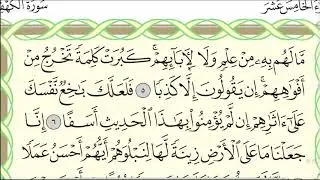 سُورَةُ الكَهْفِ
الخَامِسَ عَشَرَ
مَّا لَهُم بِهِۦ مِنْ عِلْمٍ وَلَا لِءَابَآئِهِمْ ۚ كَبُرَتْ كَلِمَةً تَخْرُجُ مِنْ
أَفْوَٰهِهِمْ ۚ إِن يَقُولُونَ إِلَّا كَذِبًا ٥ فَلَعَلَّكَ بَٰخِعٌ نَّفْسَكَ
عَلَىٰٓ ءَاثَٰرِهِمْ إِن لَّمْ يُؤْمِنُوا۟ بِهَٰذَا ٱلْحَدِيثِ أَسَفًا ٦ إِنَّا
جَعَلْنَا مَا عَلَى ٱلْأَرْضِ زِينَةً لَّهَا لِنَبْلُوَهُمْ أَيُّهُمْ أَحْسَنُ عَمَلًا